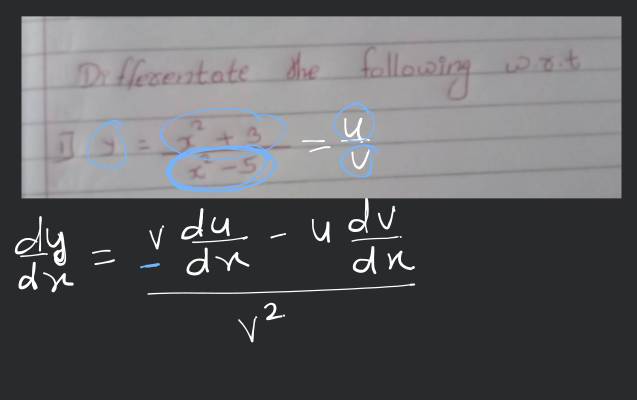 Differentate the following w.r.t
1] y = x² + 3 / x² - 5 = u / v
dy/dx = v du/dx - u dv/dx / v²